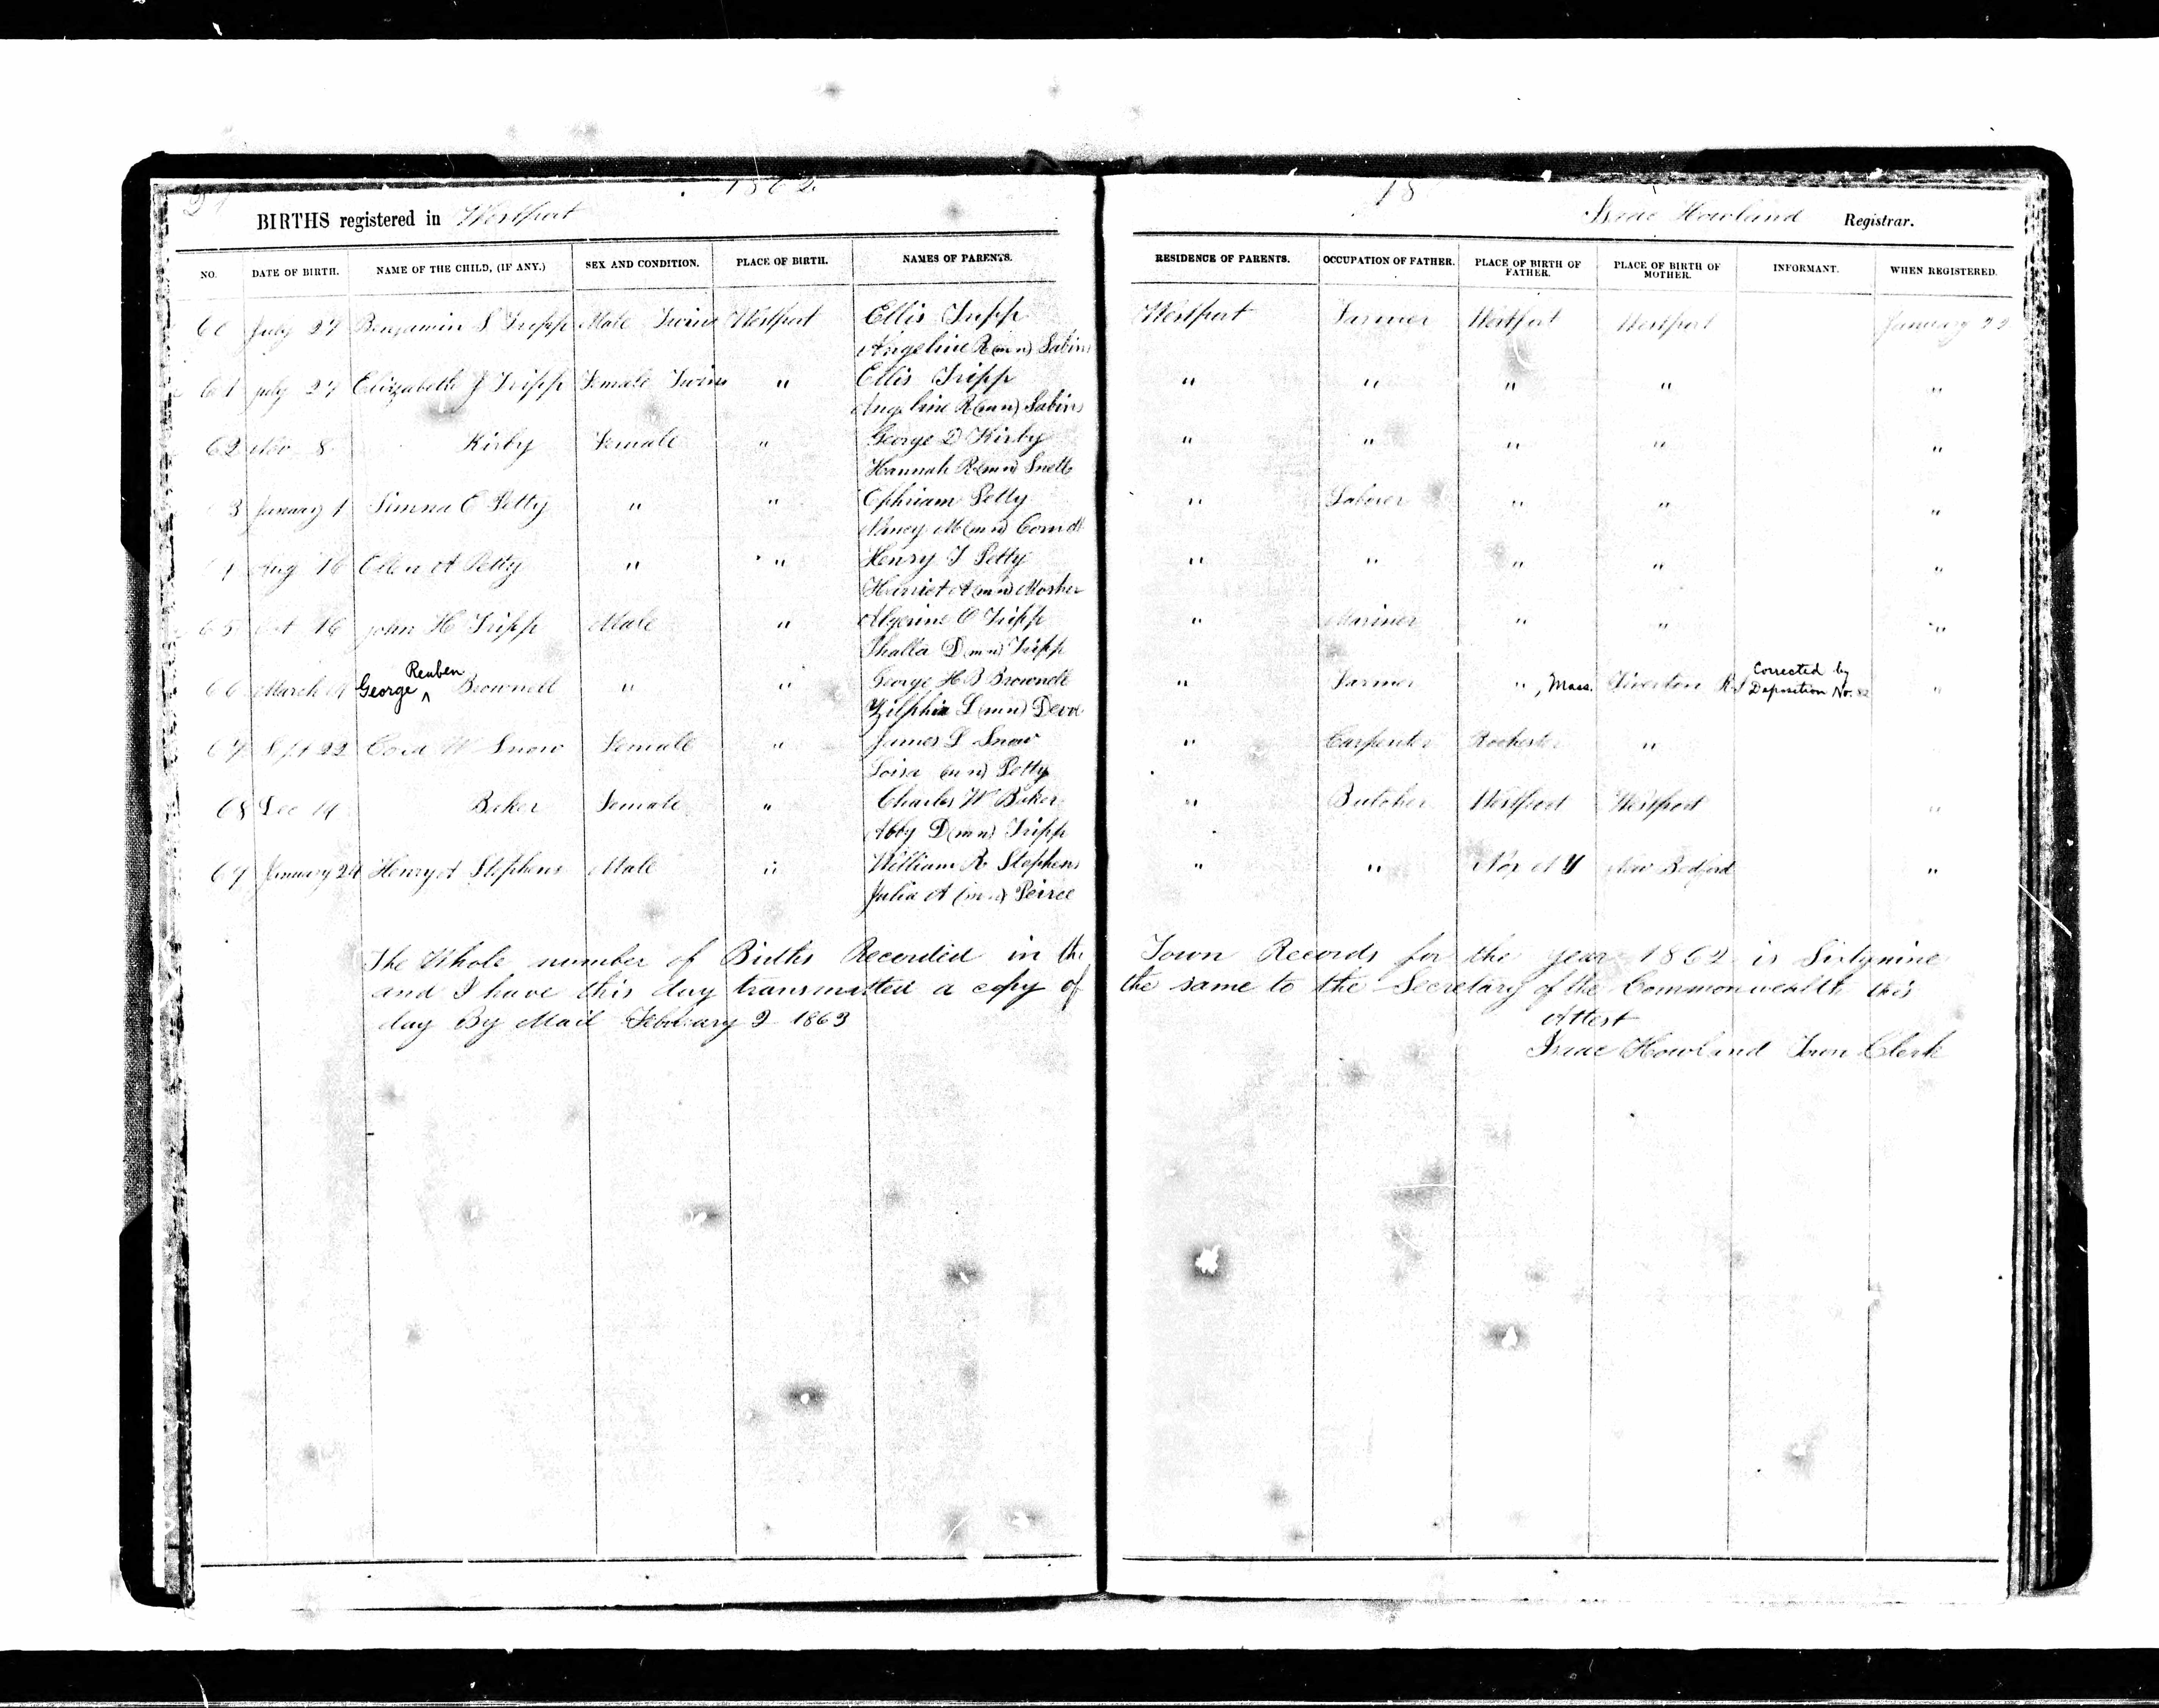 1862
18
BIRTHS registered in Westport
Isaac Howland Registrar.
NO. DATE OF BIRTH. NAME OF THE CHILD, (IF ANY.) SEX AND CONDITION. PLACE OF BIRTH. NAMES OF PARENTS. RESIDENCE OF PARENTS. OCCUPATION OF FATHER. PLACE OF BIRTH OF FATHER. PLACE OF BIRTH OF MOTHER. INFORMANT. WHEN REGISTERED.
60 July 27 Benjamin S Tripp Male Twins Westport Ellis Tripp Westport Farmer Westport Westport January 22
Angeline R (m n) Sabins
61 July 27 Elizabeth J Tripp Female Twins " Ellis Tripp " " " " "
Angeline R (m n) Sabins
62 Nov 8 Kirby Female " George D Kirby " " " " "
Hannah R (m n) Snell
3 January 1 E Petty " " Ephriam Petty " Laborer " " "
Nancy M (m n) Cornell
Aug 16 Ellen A Petty " " Henry T Petty " " " " "
Harriet A (m n) Mosher
65 Oct 16 John H Tripp Male " Algerine C Tripp " Mariner " " "
D (m n) Tripp
66 March George Reuben Brownell " " George H B Brownell " Farmer " , Mass. Tiverton R I Corrected by Deposition No. 82 "
Zilphia L (m n) Devol
67 Sept 22 Cora W Snow Female " James L Snow " Carpenter Rochester "
Loisa (m n) Petty
68 Dec 14 Baker Female " Charles W Baker " Butcher Westport Westport "
Abby D (m n) Tripp
69 January 24 Henry A Stephens Male " William R Stephens " " N Y New Bedford "
Julia A (m n) Peirce
The Whole number of Births Recorded in the Town Records for the year 1862 is Sixtynine
and I have this day transmitted a copy of the same to the Secretary of the Commonwealth this
day By Mail February 2 1863
Attest
Isaac Howland Town Clerk